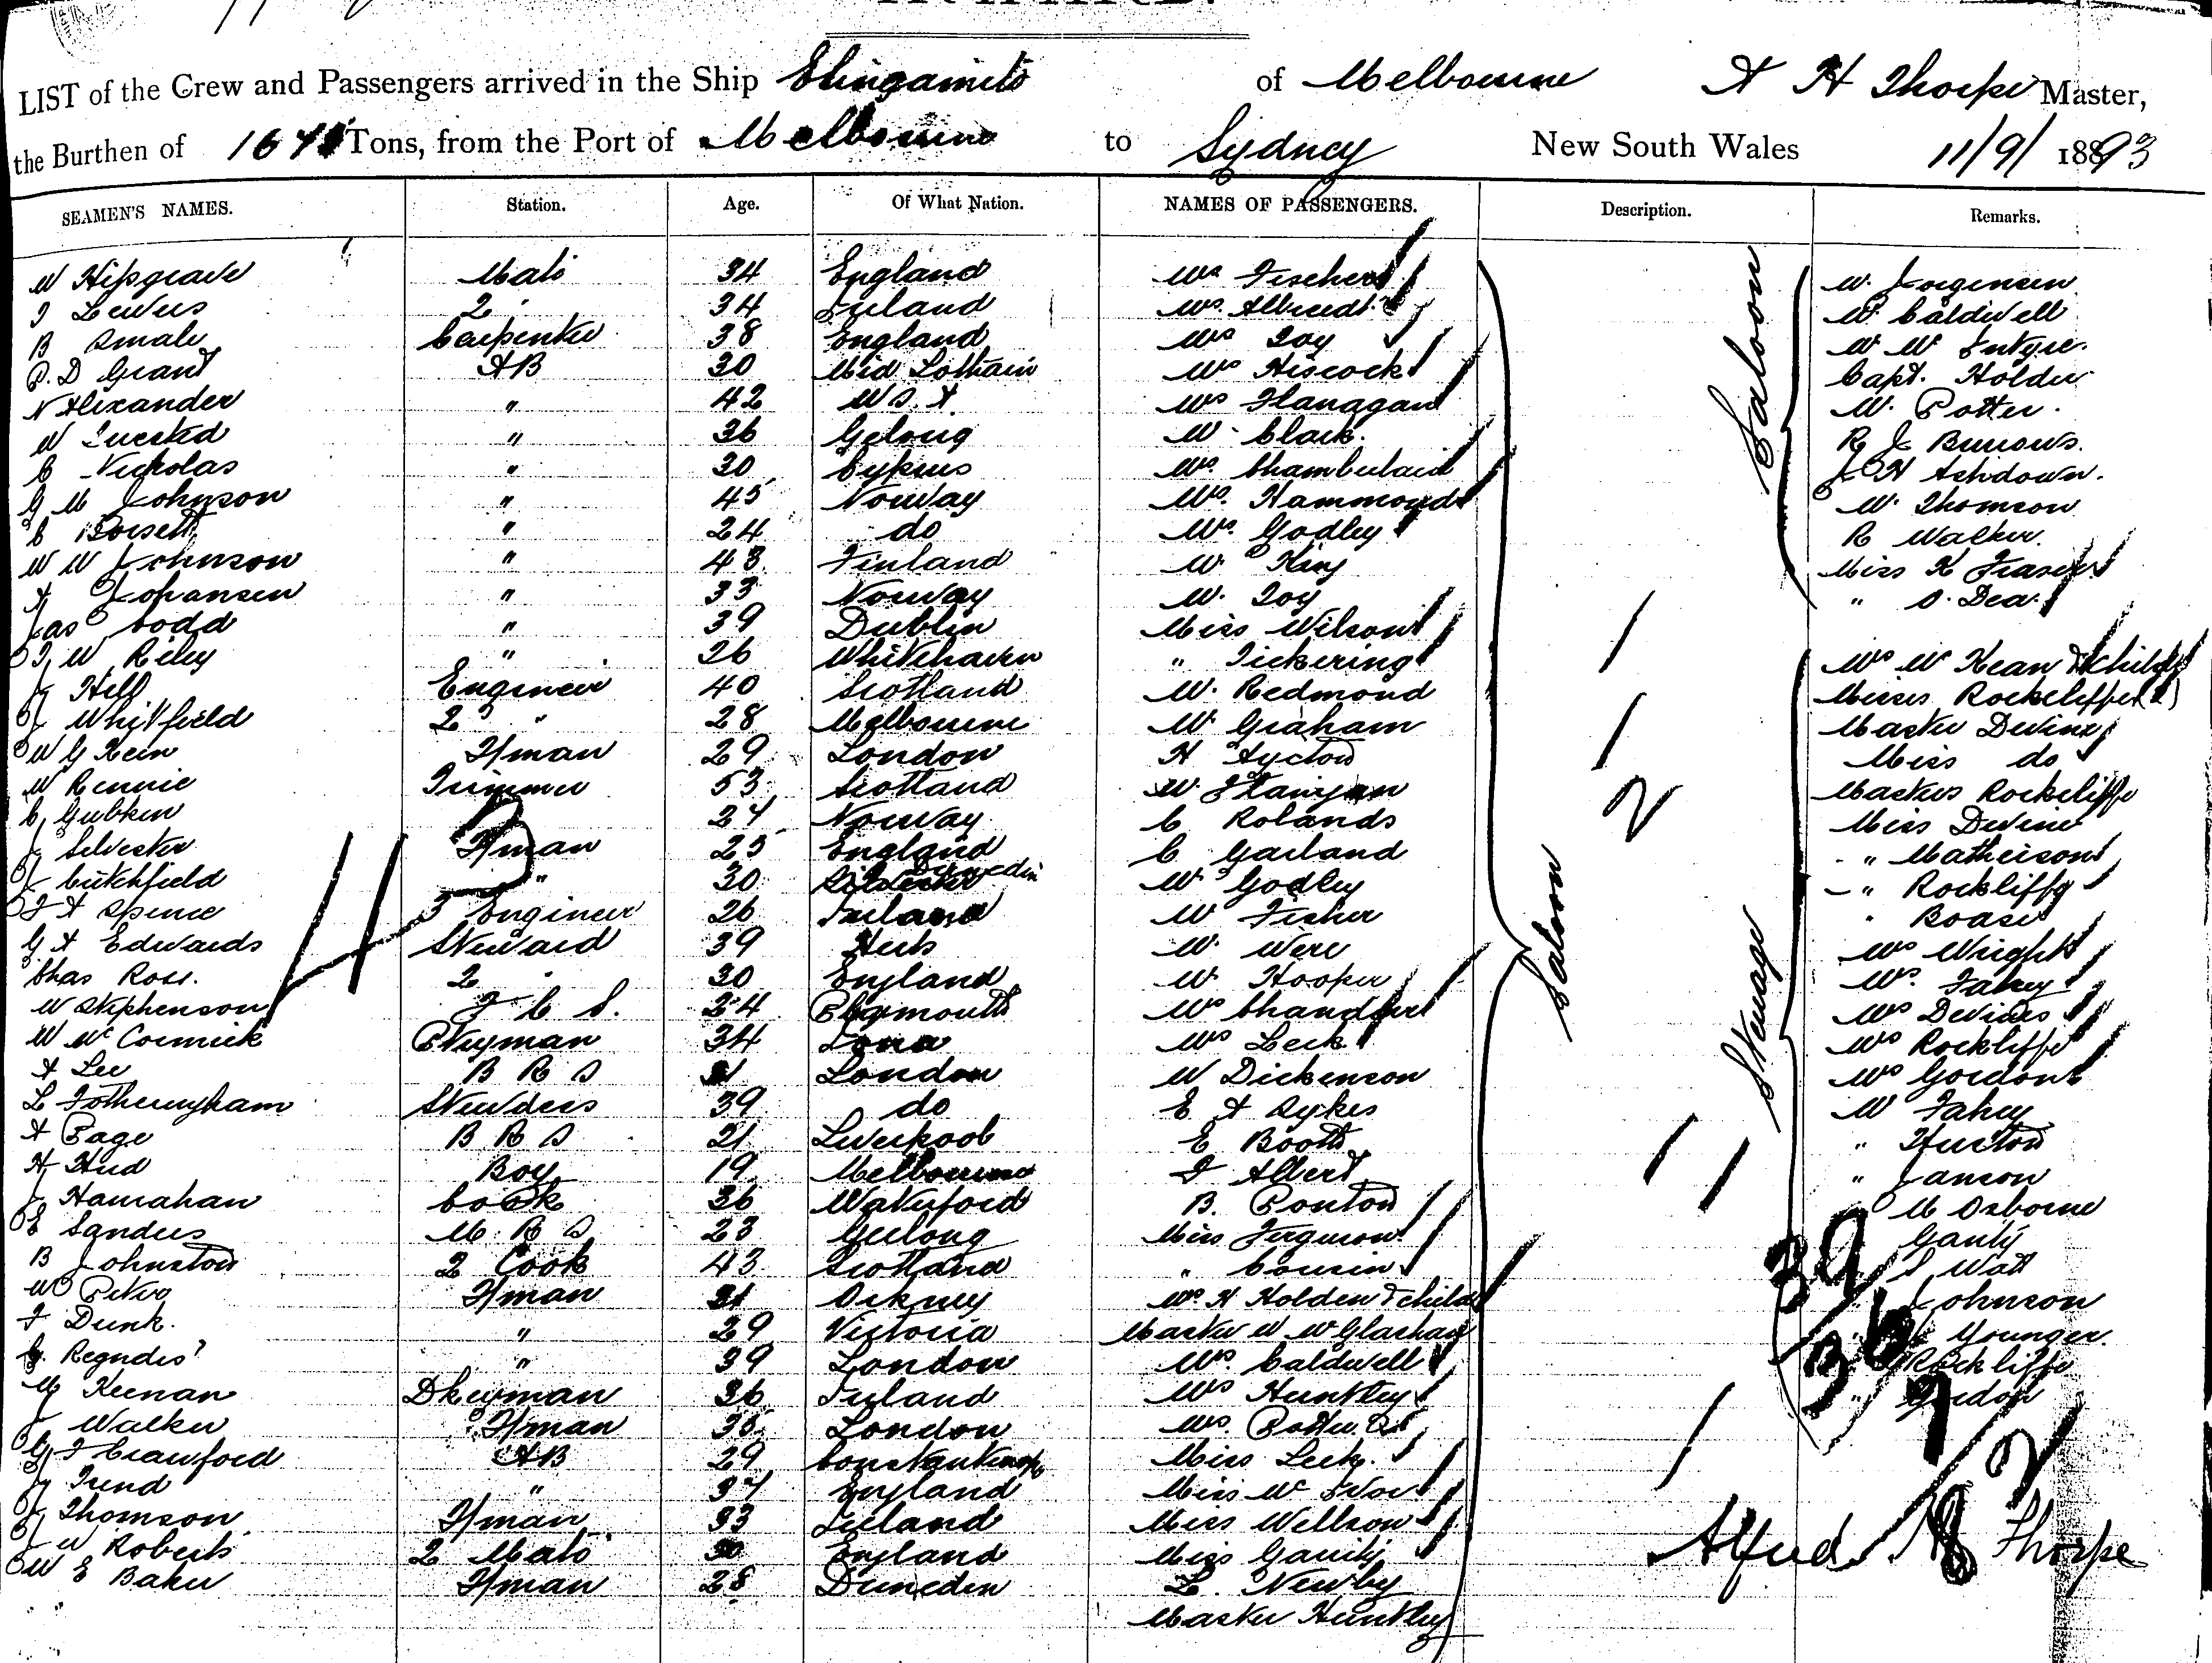 LIST of the Crew and Passengers arrived in the Ship Elingamite of Melbourne A H Thorpe Master,
the Burthen of Tons, from the Port of Melbourne to Sydney New South Wales 11/9/ 1893
SEAMEN'S NAMES. Station. Age. Of What Nation. NAMES OF PASSENGERS. Description. Remarks.
W Hipgrave Mate 34 England Mrs Fischer W. Jorgensen
Lewis 2 34 Ireland Mrs W. Caldwell
B Smale Carpenter 38 England Mrs Joy
P. D Grant AB 30 Mid Lothain Mrs Hiscock Capt. Holder
N Alexander " 42 Mrs Flanagan W. Potter.
W " 36 Gelong W. Clark. R J Burrows.
C Nicholas " 30 Cyprus Mrs. Chamberlain J H Ashdown.
G M Johnson " 45 Norway Mrs. Hammond W. Thomson
C " 24 do Mrs. Godley R Walker.
W W Johnson " 43 Finland W. King Miss K Fraser
A Johansen " 33 Norway W. Joy " O. Dea.
Jas Codd " 39 Dublin Miss Wilson
J. W Riley " 26 Whitehaven " Pickering Mrs Mc Kean & child
J Hill Engineer 40 Scotland W. Redmond Misses Rockcliffe (2)
J Whitfield 2 " 28 Melbourne W. Graham Master Devine
W G Kein F/man 29 London H Miss do
W Rennie Trimmer 53 Scotland W. Masters Rockcliffe
C Gubken 24 Norway C Rolands Miss Devine
J Silvester F/man 25 England C Garland " Matheison
J Cutchfield " 30 Dunedin W Godley " Rockliffe
J A Spence 3 Engineer 26 Ireland W Fisher " Boase
G A Edwards Steward 39 Herts W. Were Mrs Wright
Chas Ross. 2 " 30 England W Hooper Mrs. Fahey
W Stephenson F C S. 24 Plymouth Mrs Chandler Mrs Devines
W Mc Cormick P'tryman 34 Iona Mrs Leck Mrs Rockliffe
A Lee B R S London W Dickenson Mrs Gordon
L Fotheringham Stewdess 39 do E A Sykes W Fahey
A Page B R S 21 Liverpool E Booth " Huston
H Hud Boy 19 Melbourne J Albert " Janson
J Hanrahan Cook 36 Waterford B. Ponton M Osborne
E Sanders M. R S 23 Geelong Miss Ferguson Ganly
B Johnston 2 Cook 43 Scotland " Cousin S Watt
W Peter F/man Orkney Mrs. H Holden & child Johnson
F Dunk. " 29 Victoria Master W McGlashan Younger
Regndis? " 39 London Mrs. Caldwell Rockliffe
M Keenan Dkeyman 36 Ireland Mrs Huntley Gordon
J Walker F/man London Mrs. Potter
G F Crawford AB 29 Constantinople Miss Leck.
J Trend " England Miss Mc
J Thomson F/man 33 Ireland Miss Wellson
J W Roberts 2 Mate England Miss Ganly
W E Baker F/man 28 Dunedin L. Newby
Master Huntley
Saloon
Saloon
Steerage
39
36
Alfred H Thorpe